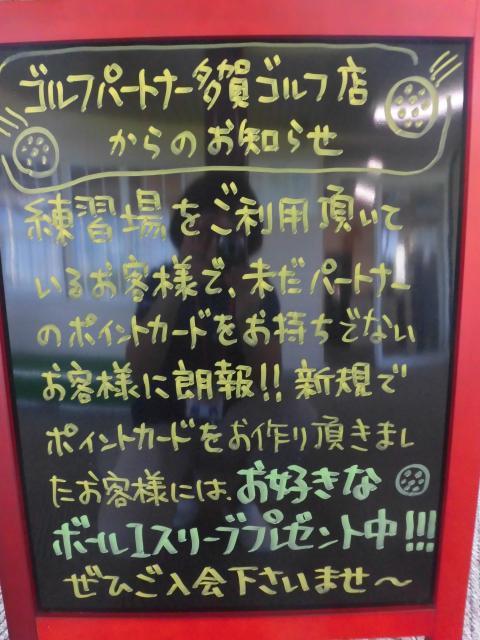 ゴルフパートナー多賀ゴルフ店
からのお知らせ
練習場をご利用頂いて
いるお客様で、未だパートナー
のポイントカードをお持ちでない
お客様に朗報!! 新規で
ポイントカードをお作り頂きまし
たお客様には、お好きな
ボール1スリーブプレゼント中!!!
ぜひご入会下さいませ〜